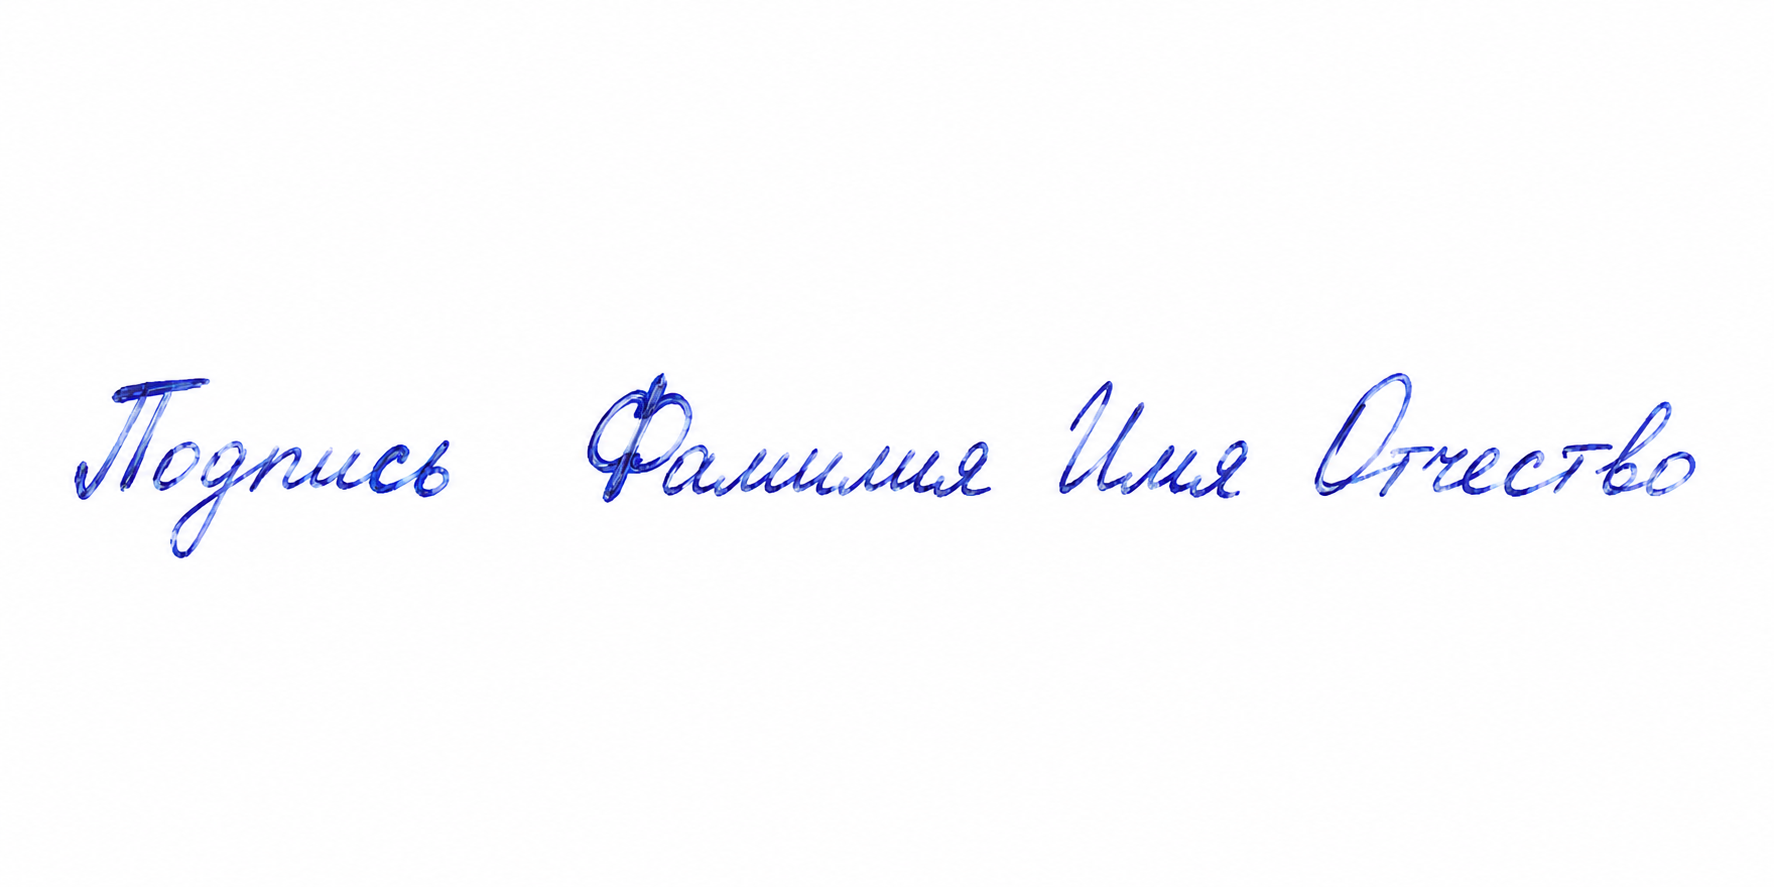 Подпись Фамилия Имя Отчество